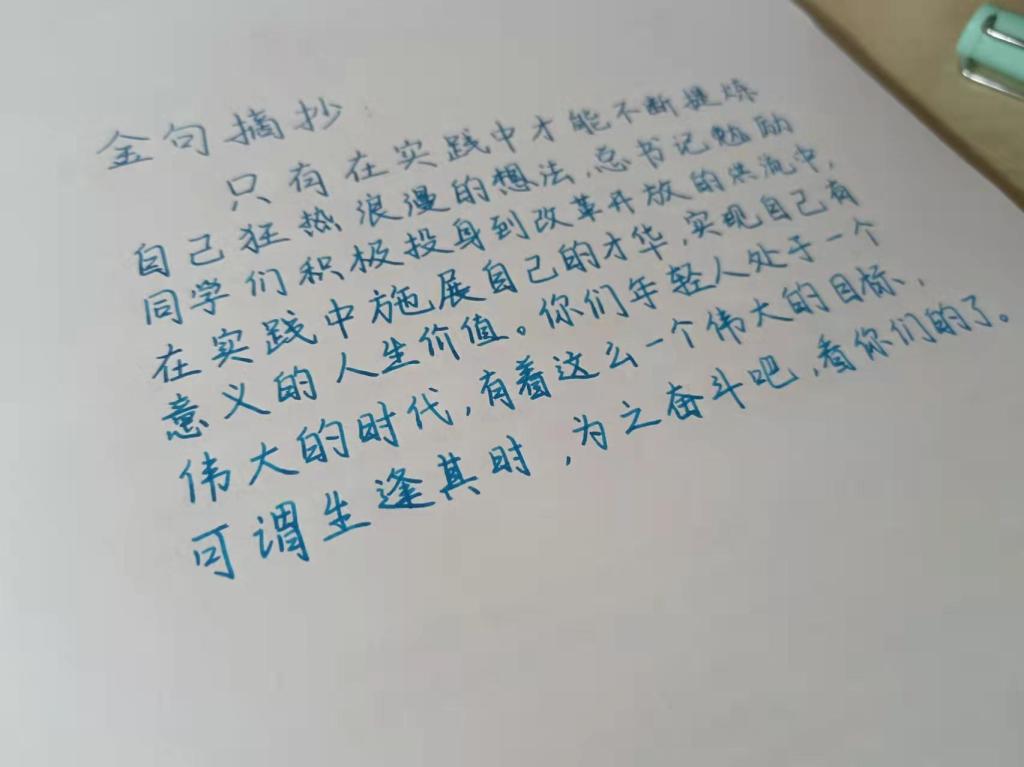 金句摘抄：
只有在实践中才能不断提炼
自己狂热浪漫的想法，总书记勉励
同学们积极投身到改革开放的洪流中，
在实践中施展自己的才华，实现自己有
意义的人生价值。你们年轻人处于一个
伟大的时代，有着这么一个伟大的目标，
可谓生逢其时，为之奋斗吧，看你们的了。